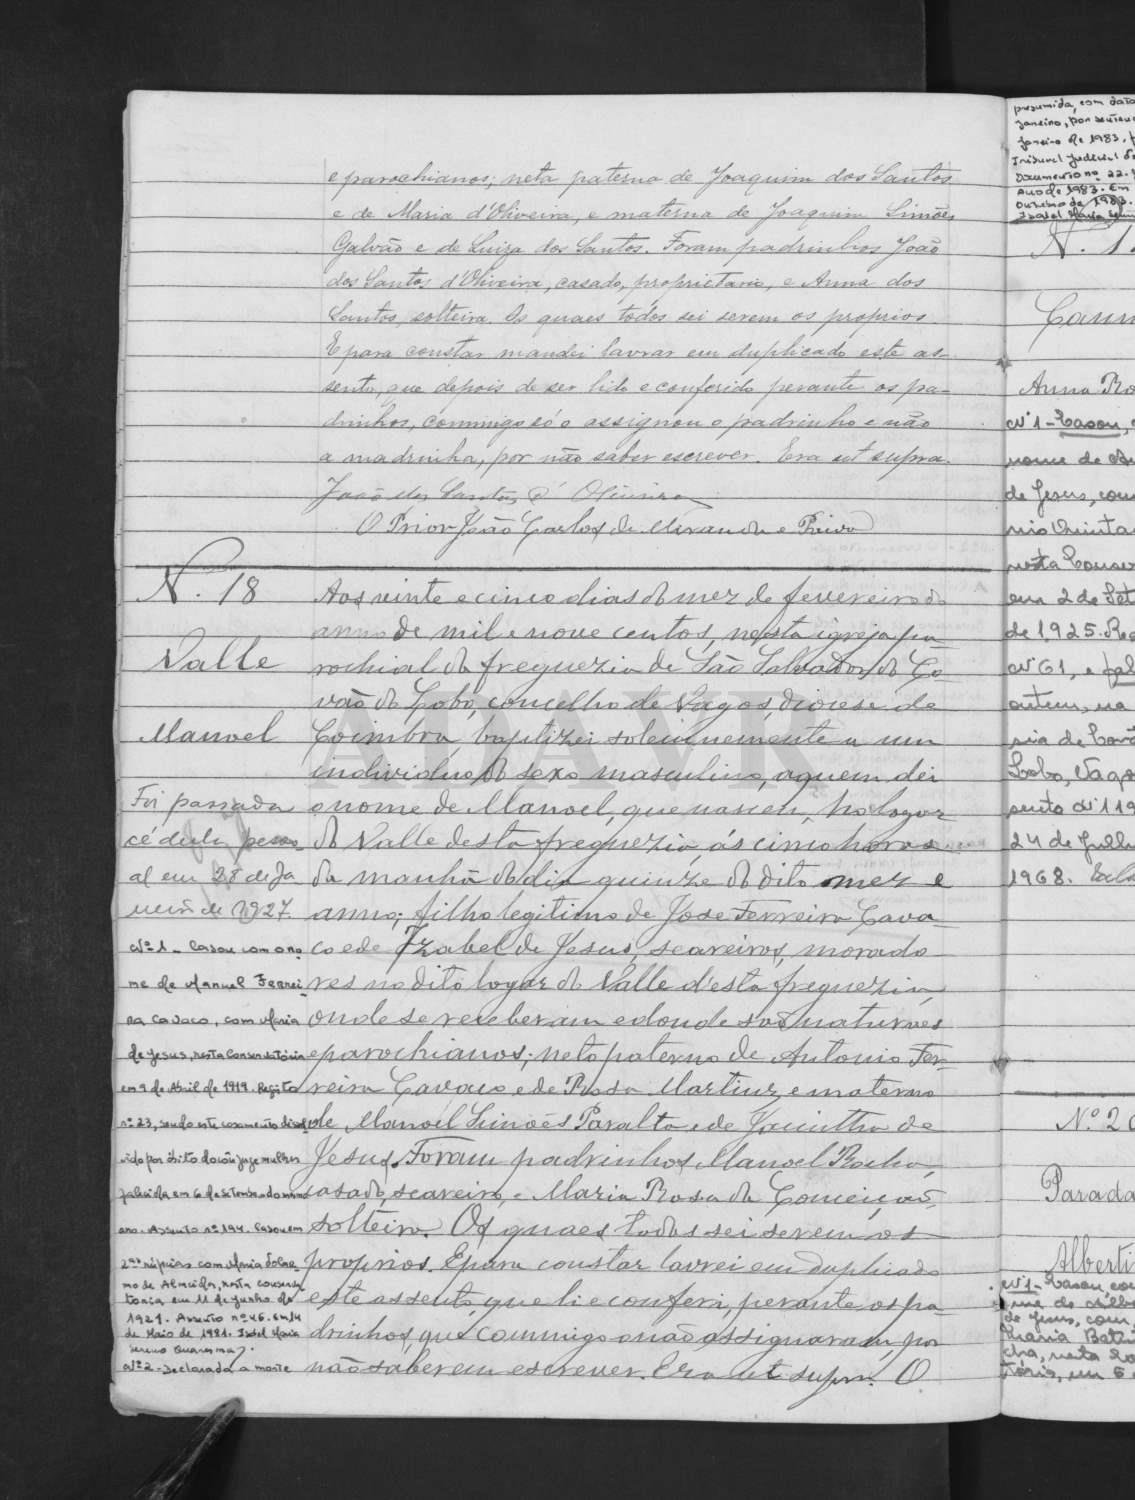 e parochianos; neta paterna de Joaquim dos Santos
e de Maria d'Oliveira, e materna de Joaquim Simões
Galvão e de Luiza dos Santos. Foram padrinhos João
dos Santos d'Oliveira, casado, proprietario, e Anna dos
Santos, solteira. Os quaes todos sei serem os proprios.
E para constar mandei lavrar em duplicado este as-
sento, que depois de ser lido e conferido perante os pa-
drinhos, commigo só o assignou o padrinho e não
a madrinha, por não saber escrever. Era ut supra.
João dos Santos d'Oliveira
O Prior João Carlos de Miranda e Paiva
N. 18
Valle
Manoel
Foi passada
cédula pesso-
al em 28 de Ja
neiro de 1927.
Nº 1 - Casou com o no-
me de Manuel Ferrei-
ra Cavaco, com Maria
de Jesus, nesta Conservatória
em 9 de Abril de 1919. Registo
nº 23, sendo este casamento dissol-
vido por óbito do cônjuge mulher
falecida em 6 de Setembro do mesmo
ano. Assento nº 194. Casou em
2as núpcias com Maria
de Almeida, nesta conserva-
tória em 11 de Junho de
1921. Assento nº 46. Em 14
de Maio de 1981. Isabel Maria
Quaresma.
Nº 2 - Declarada a morte
Aos vinte e cinco dias do mez de fevereiro do
anno de mil e nove centos, nesta igreja pa
rochial da freguezia de São Salvador do Co
vão do Lobo, concelho de Vagos, diocese de
Coimbra, baptizei solemnemente a um
individuo do sexo masculino, a quem dei
o nome de Manoel, que nasceu, no logar
do Valle desta freguezia, ás cinco horas
da manhã do dia quinze do dito mez e
anno; filho legitimo de Jose Ferreira Cava
co e de Izabel de Jesus, seareiros, morado
res no dito logar do Valle d'esta freguezia,
onde se receberam e donde são naturaes
e parochianos; neto paterno de Antonio Fer-
reira Cavaco e de Rosa Martins, e materno
de Manoel Simões Paralta e de Jacintha de
Jesus. Foram padrinhos Manoel Rocha,
casado, seareiro, e Maria Rosa da Conceição,
solteira. Os quaes todos sei serem os
proprios. E para constar lavrei em duplicado
este assento, que li e conferi, perante os pa
drinhos, que commigo o não assignaram, por
não saberem escrever. Era ut supra. O
presumida, com data
Janeiro, por senten
Janeiro de 1983,
Tribunal Judicial de
Documento nº 22.
Ano de 1983. Em
de 1983.
Isabel Maria
N. 1
Anna Ro
Nº 1 - Casou,
nome de
de Jesus, com
nio Quinta
nesta Conser
em 2 de Set
de 1925. Reg
Nº 61, e fal
ontem, na
sia de Covã
Lobo, Vago
sento Nº 119
24 de Julh
1968.
Nº 20
Parada
Alberti
Nº 1 - Casou com
me de
de Jesus, com
Maria
cha, nesta Co
tória, em 5